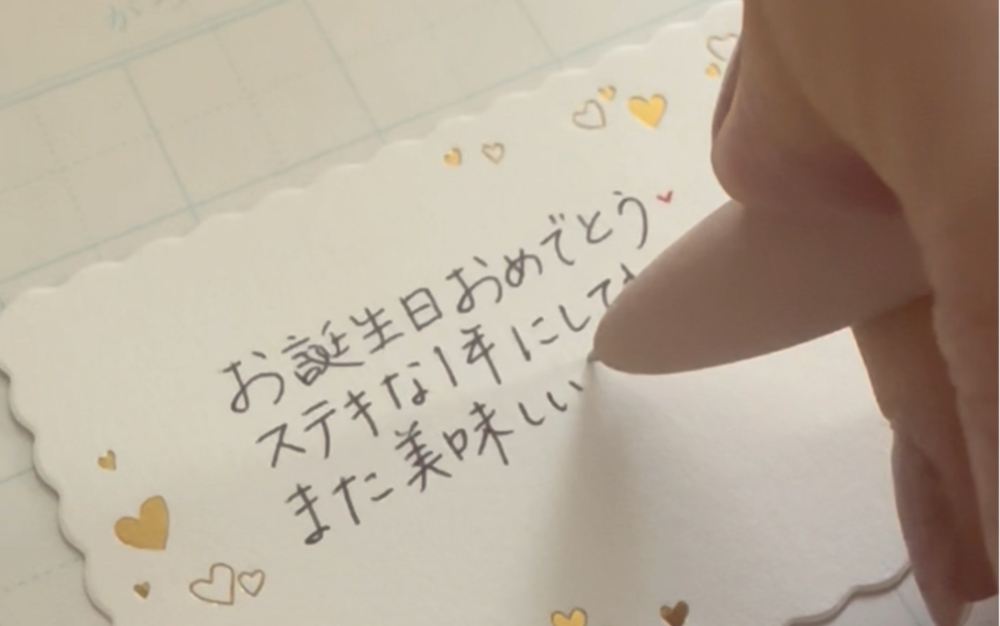 お誕生日おめでとう
ステキな1年にして
また美味しい